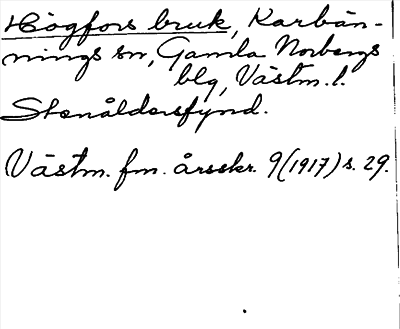 Högfors bruk, Karbän-
nings sn, Gamla Norbergs
blg, Västm. l.
Stenåldersfynd.
Västm. fm. årsskr. 9(1917) s. 29.